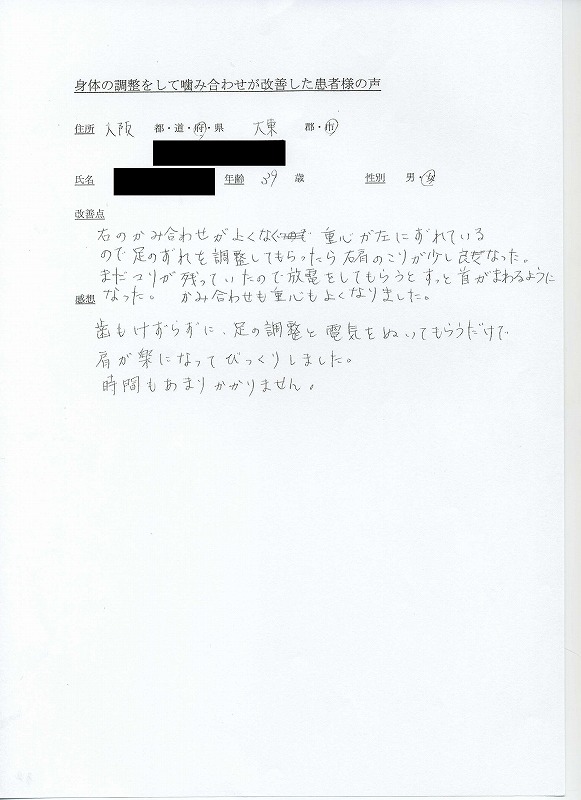 身体の調整をして噛み合わせが改善した患者様の声
住所 大阪 都・道・府・県 大東 郡・市
氏名 年齢 39 歳 性別 男・女
改善点
右のかみ合わせがよくなく 重心が左にずれている
ので足のずれを調整してもらったら右肩のこりが少し良くなった。
まだコリが残っていたので放電をしてもらうとすっと首がまわるように
なった。 かみ合わせも重心もよくなりました。
感想
歯もけずらずに、足の調整と電気をぬいてもらうだけで
肩が楽になってびっくりしました。
時間もあまりかかりません。